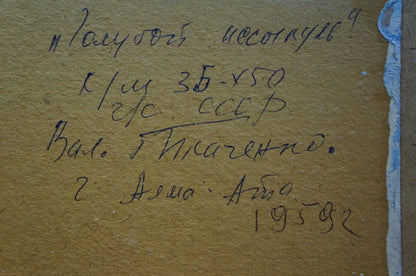 "Голубой Иссыккуль"
к/м 35 x 50
ч/с СССР
Вал. Ткаченко.
г Алма-Ата
1959г